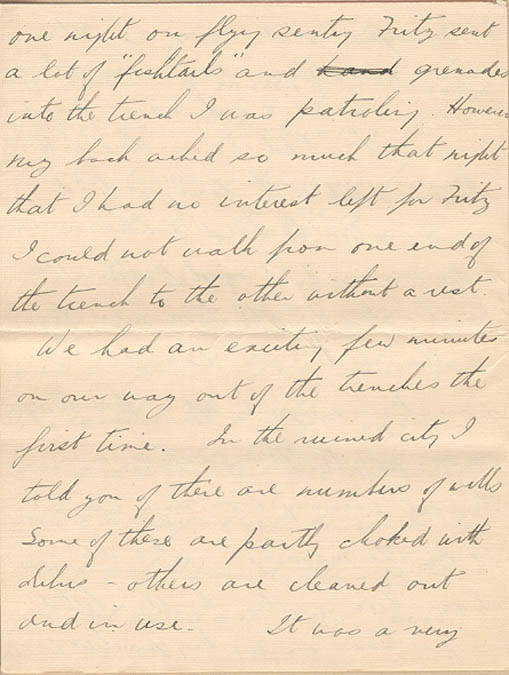 one night on flying sentry Fritz sent
a lot of "fishtails" and hand grenades
into the trench I was patroling. However
my back ached so much that night
that I had no interest left for Fritz
I could not walk from one end of
the trench to the other without a rest.
We had an exciting few minutes
on our way out of the trenches the
first time. In the ruined city I
told you of there are numbers of wells
Some of these are partly choked with
debris - others are cleaned out
and in use. It was a very